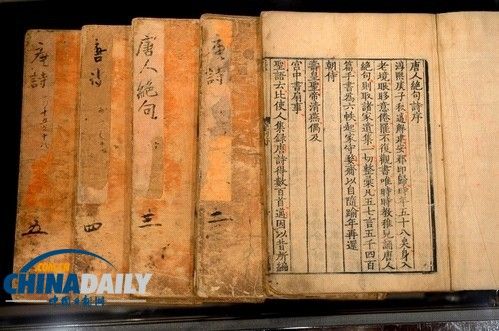 唐人絶句詩序
淳熙庚子秋邁解建安郡印歸時年五十八矣身入
老境眼眵意倦罷不復觀書唯時時教稚兒誦唐人
絶句則取諸家遺集一切整彙凡五七言五千四百
篇手書為六帙起家守婺齎以自隨踰年再還
朝侍
壽皇聖帝清燕偶及
宮中書扇事
聖語云比使人集録唐詩得數百首邁因以昔所編
唐詩
二
唐人絶句
三
唐詩
四
唐詩
五
CHINADAILY
中國日報網